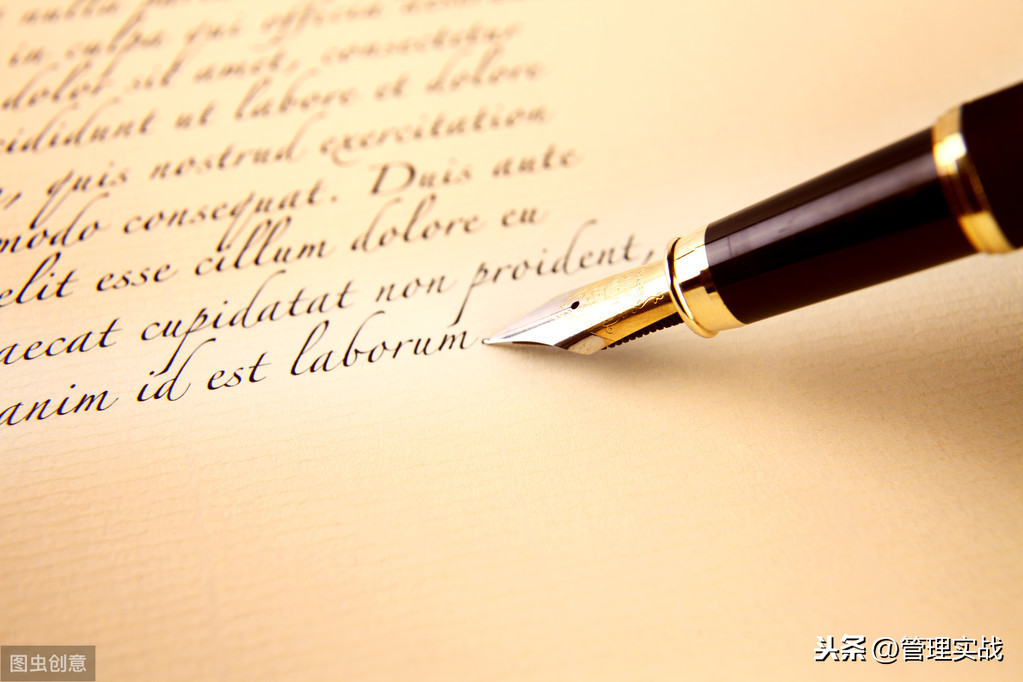 nulla qui officia
in culpa qui officia
dolor sit amet, consectetur
cididunt ut labore et dolore
, quis nostrud exercitation
modo consequat. Duis aute
elit esse cillum dolore eu
aecat cupidatat non proident,
anim id est laborum.
图虫创意
头条 @管理实战